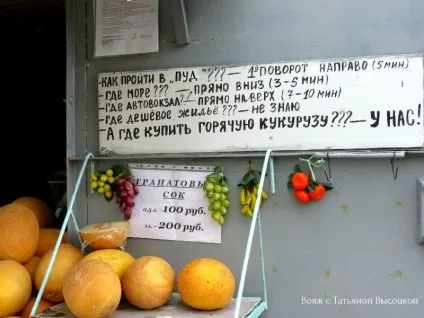 -КАК ПРОЙТИ В „ПУД"???— 1й ПОВОРОТ НАПРАВО (5 МИН)
-ГДЕ МОРЕ???— ПРЯМО ВНИЗ (3-5 МИН)
-ГДЕ АВТОВОКЗАЛ?— ПРЯМО НАВЕРХ (7-10 МИН)
-ГДЕ ДЕШЁВОЕ ЖИЛЬЁ???— НЕ ЗНАЮ
-А ГДЕ КУПИТЬ ГОРЯЧУЮ КУКУРУЗУ???—У НАС!
ГРАНАТОВЫЙ
СОК
0,5л.-100 руб.
1л.-200 руб.
Вояж с Татьяной Высоцкой